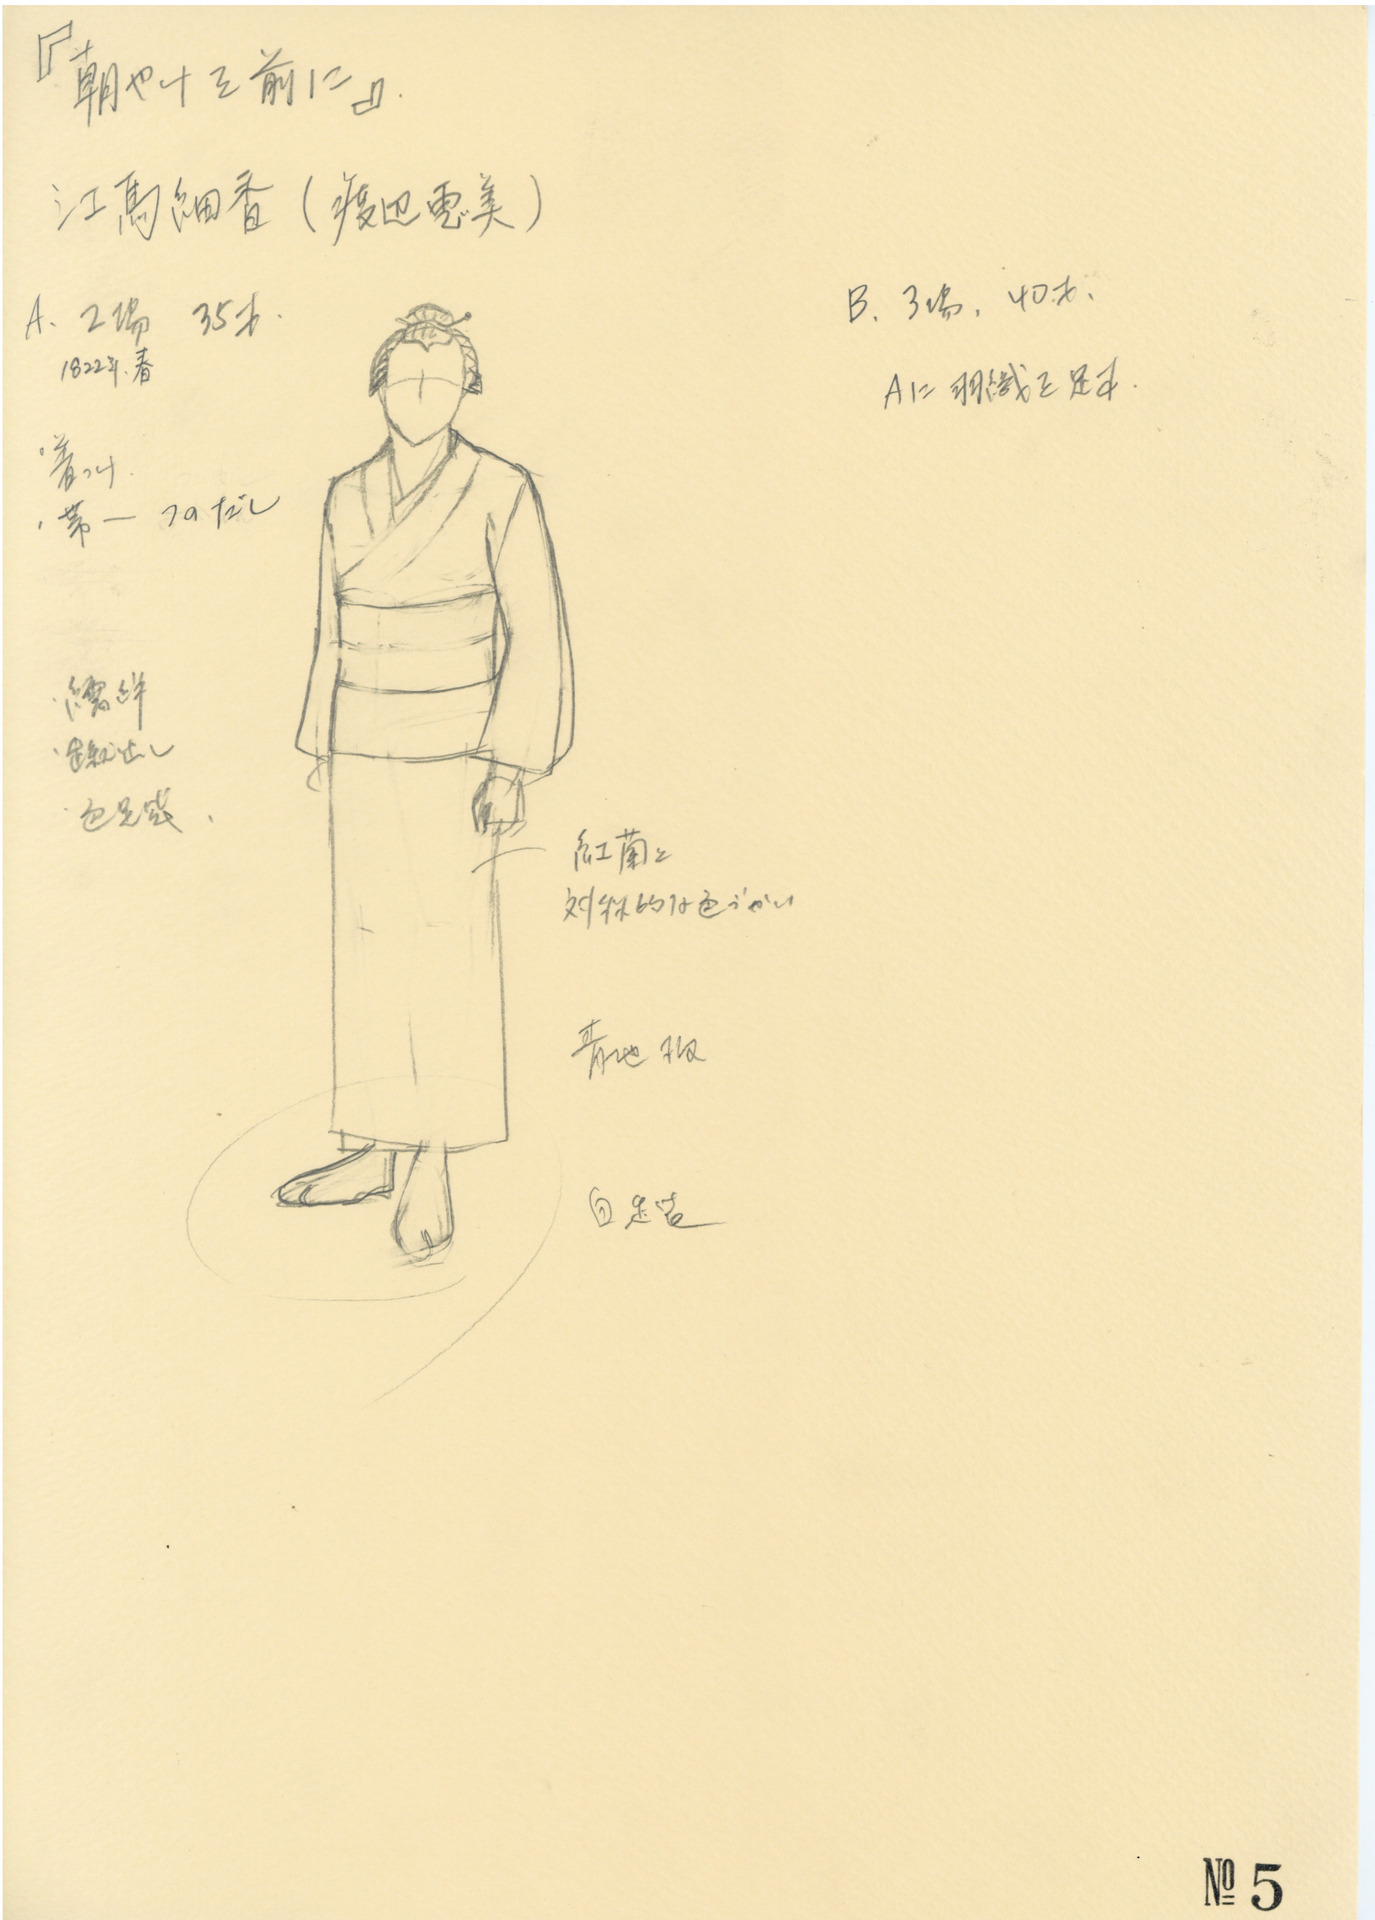 『朝やけを前に』.
江馬細香(渡辺恵美)
A. 2場 35才.
1822年.春
・着つけ.
・帯一 つのだし
・襦袢
・裾出し
・色足袋.
紅蘭と
対称的な色づかい
青地
白足袋
B. 3場. 40才.
Aに羽織を足す.
№ 5